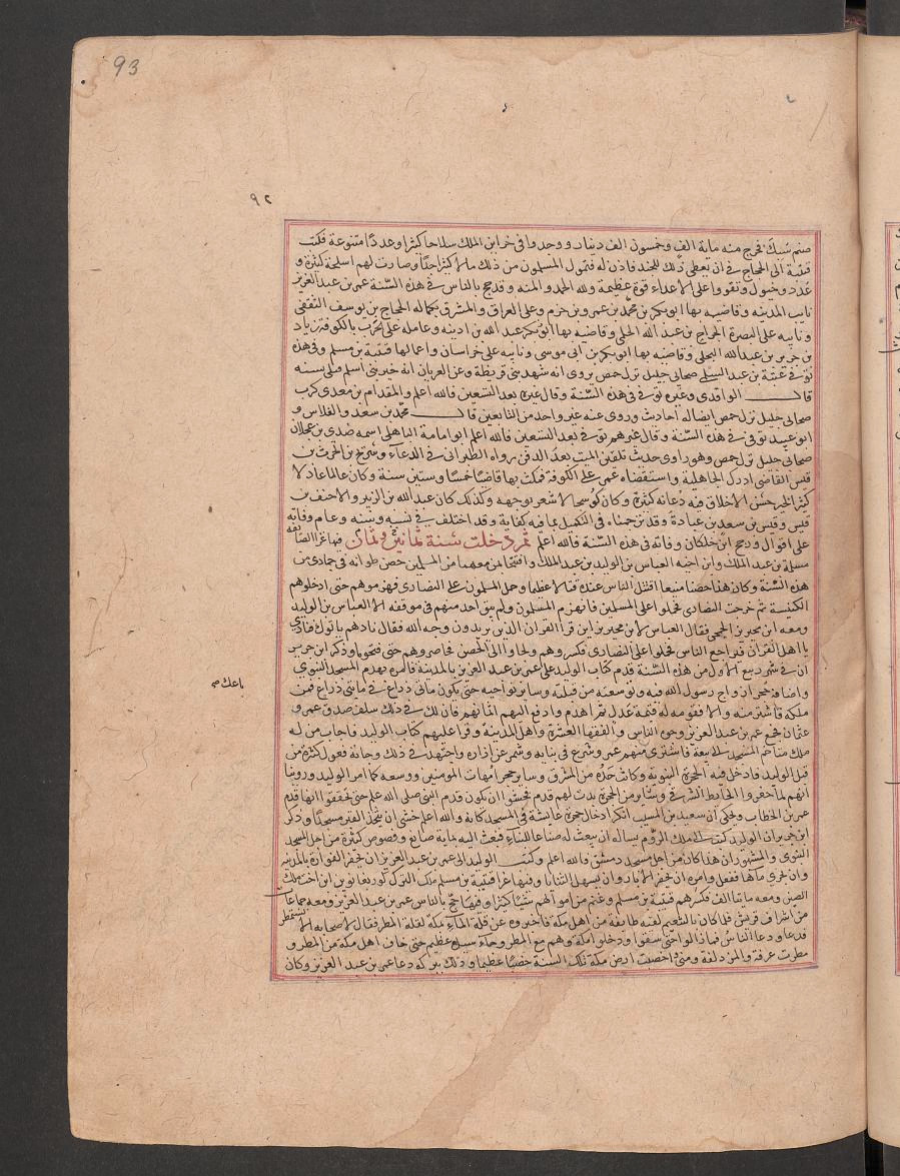 93
٩٢
صنم سبك فخرج منه ماية الف وخمسون الف دينار ووجدوا في خزاين الملك سلاحا كثيرا وعددا متنوعة فكتب
قتيبة الى الحجاج في ان يعطي ذلك للجند فاذن له فتمول المسلمون من ذلك مالا كثيرا جدا وصارت لهم اسلحة كثيرة و
عدد وخيول وتقووا على الاعداء قوة عظيمة ولله الحمد والمنه وقد حج بالناس في هذه السنة عمر بن عبد العزيز
نايب المدينه وقاضيه بها ابو بكر بن محمد بن عمرو بن حزم وعلى العراق والمشرق بكماله الحجاج بن يوسف الثقفي
ونايبه على البصرة الجراح بن عبد الله الحكمي وقاضيه بها عبد الله بن اذينه وعامله على الحرب بالكوفة زياد
بن جرير بن عبد الله البجلي وقاضيه بها ابو بكر بن ابي موسى ونايبه على خراسان واعمالها قتيبة بن مسلم وفي هذه
توفي عتبة بن عبد السلمي صحابي جليل نزل حمص يروى انه شهد بني قريظة وعن العرباض انه خير مني اسلم قبلي بسنه
قال الواقدي وغيره توفي في هذه السنة وقال غيره بعد التسعين فالله اعلم والمقدام بن معدي كرب
صحابي جليل نزل حمص ايضا له احاديث وروى عنه غير واحد من التابعين قال محمد بن سعد والفلاس و
ابو عبيد توفي في هذه السنة وقال غيرهم توفي بعد التسعين فالله اعلم ابو امامة الباهلي اسمه صدي بن عجلان
صحابي جليل نزل حمص وهو راوي حديث تلقين الميت بعد الدفن رواه الطبراني في الدعاء وشريح بن الحرث بن
قيس القاضي ادرك الجاهلية واستقضاه عمر على الكوفة فمكث بها قاضيا خمسا وستين سنة وكان عالما عادلا
كثير الخير حسن الاخلاق فيه دعابة كثيرة وكان كوسجا لا شعر بوجهه وكذلك كان عبد الله بن الزبير والاحنف بن
قيس وقيس بن سعد بن عبادة وقد ترجمناه في التكميل بما فيه كفاية وقد اختلف في نسبه وسنه وعام وفاته
على اقوال ورجح ابن خلكان وفاته في هذه السنة فالله اعلم ثم دخلت سنة ثمان وثمانين فيها غزا الصائفه
مسلمة بن عبد الملك وابن اخيه العباس بن الوليد بن عبد الملك وافتتحا بمن معهما من المسلمين حصن طوانه في جمادى من
هذه السنة وكان هذا حصنا منيعا اقتتل الناس عنده قتالا عظيما وحمل المسلمون على النصارى فهزموهم حتى ادخلوهم
الكنيسة ثم خرجت النصارى فحملوا على المسلمين فانهزم المسلمون ولم يبق احد منهم في موقفه الا العباس بن الوليد
ومعه ابن محيريز الجمحي فقال العباس لابن محيريز اين قرا القران الذين يريدون وجه الله فقال نادهم ياتوك فنادى
يا اهل القران فتراجع الناس فحملوا على النصارى فكسروهم ولجاوا الى الحصن فحاصروهم حتى فتحوه وذكر ابن جرير
ان في شهر ربيع الاول من هذه السنة قدم كتاب الوليد على عمر بن عبد العزيز بالمدينة فامره بهدم المسجد النبوي
واضافة حجر ازواج رسول الله فيه وتوسعته من قبلته وساير نواحيه حتى يكون مائتي ذراع في مائتي ذراع فمن
ملكه فاشتر منه والا فقومه له قيمة عدل ثم اهدم وادفع اليهم اثمانهم فان لك في ذلك سلف صدق عمر و
عثمان فجمع عمر بن عبد العزيز وجوه الناس والفقها العشرة واهل المدينة وقرا عليهم كتاب الوليد فاجاب من له
ملك متاخم المسجد للبيعة فاشترى منهم عمر وشرع في بنايه وشمر عن ازاره واجتهد في ذلك وجاته فعول كثيرة من
قبل الوليد فادخل فيه الحجرة النبوية وكانت حده من الشرق وساير حجر امهات المومنين ووسعه كما امر الوليد وروينا
انهم لما حفروا الحايط الشرقي من الحجرة بدت لهم قدم فخشوا ان يكون قدم النبي صلى الله عليه حتى تحققوا انها قدم
عمر بن الخطاب ويحكى ان سعيد بن المسيب انكر ادخال حجرة عايشة في المسجد كانه والله اعلم خشي ان يتخذ القبر مسجدا وذكر
ابن جرير ان الوليد كتب الى ملك الروم يساله ان يبعث له صناعا للبناء فبعث اليه بماية صانع وفصوص كثيرة من اجل المسجد
النبوي والمشهور ان هذا كان من اجل مسجد دمشق فالله اعلم وكتب الوليد الى عمر بن عبد العزيز ان يحفر الفوارة بالمدينه
وان يجري ماها ففعل وامره ان يحفر الابار وان يسهل الثنايا وفيها غزا قتيبة بن مسلم ملك الترك كور بغانون ابن اخت ملك
الصين ومعه مايتا الف فكسرهم قتيبة بن مسلم وغنم من اموالهم شيا كثيرا وفيها حج بالناس عمر بن عبد العزيز ومعه جماعات
من اشراف قريش فلما كان بالتنعيم لقيه طايفة من اهل مكة فاخبروه عن قلة الماء بمكة لقلة المطر فقال لاصحابه الا نستمطر
فدعا ودعا الناس فما زالوا حتى سقوا ودخلوا مكة وهم مع المطر وجاء سيل عظيم حتى خاف اهل مكة من المطر و
مطرت عرفة والمزدلفة ومنى واخصبت ارض مكة تلك السنة خصبا عظيما وذلك ببركة دعا عمر بن عبد العزيز وكان